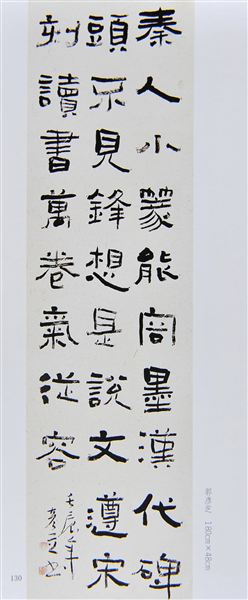 秦人小篆能墨漢代碑
頭不見鋒想是說文遵宋
刻讀書萬卷氣從容
壬辰年
180cm×48cm
130